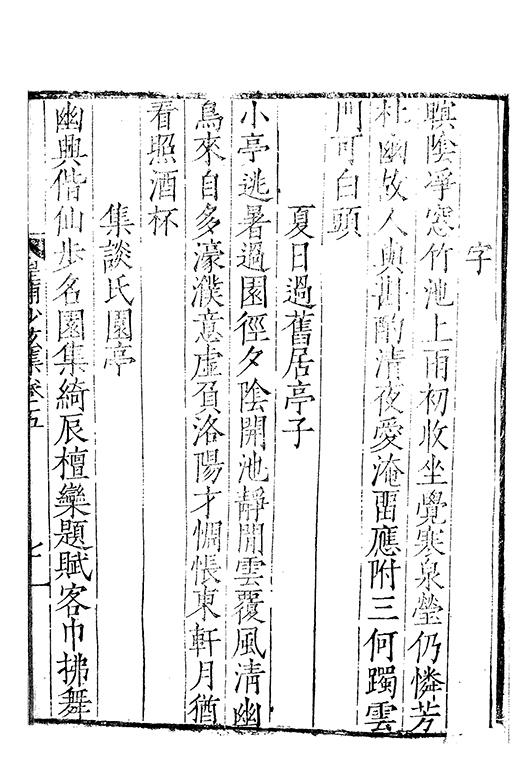 字
暝陰凈窓竹池上雨初收坐覺寒泉瑩仍憐芳
杜幽故人與斟酌清夜愛淹畱應附三何躅雲
門可白頭
夏日過舊居亭子
小亭逃暑過園徑夕陰開池靜閒雲覆風清幽
鳥來自多濠濮意虛負洛陽才惆悵東軒月猶
看照酒杯
集談氏園亭
幽興偕仙步名園集綺辰檀欒題賦客巾拂舞
皇甫少玄集卷五
七